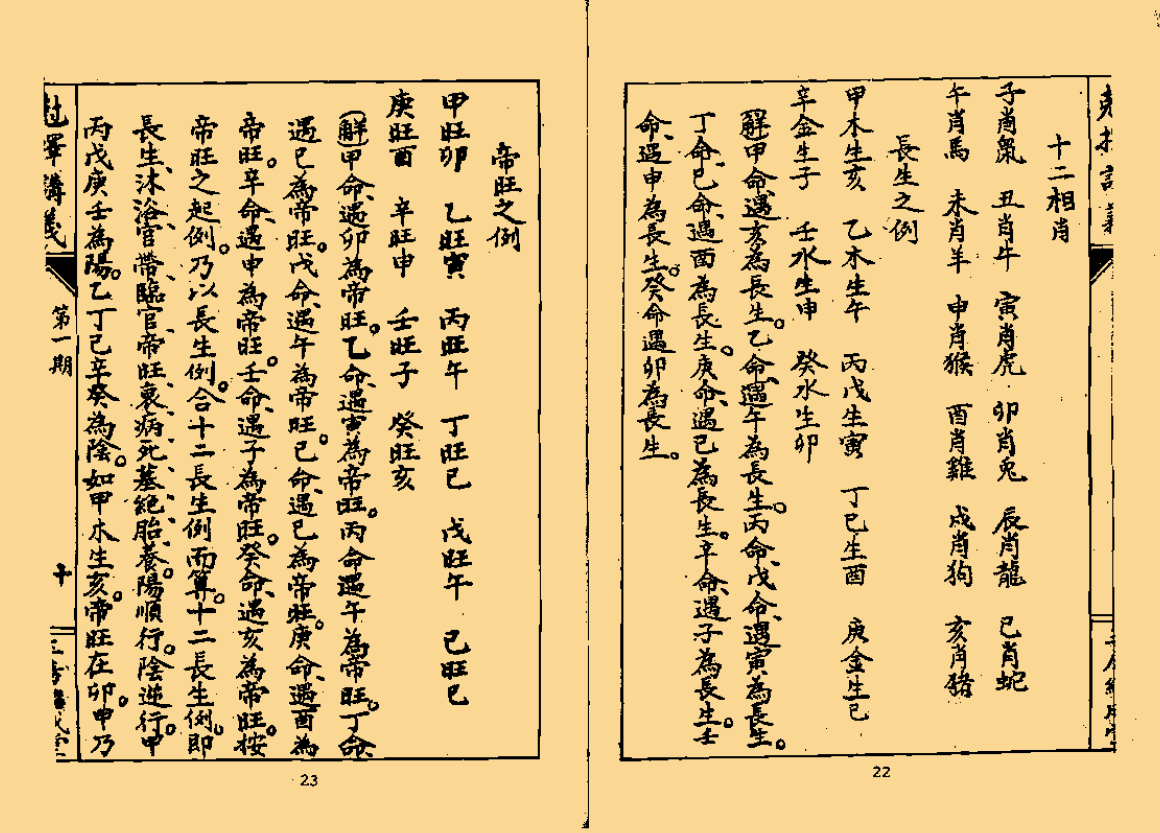 十二相肖
子肖鼠 丑肖牛 寅肖虎 卯肖兎 辰肖龍 巳肖蛇
午肖馬 未肖羊 申肖猴 酉肖雞 戌肖狗 亥肖猪
長生之例
甲木生亥 乙木生午 丙戊生寅 丁己生酉 庚金生巳
辛金生子 壬水生申 癸水生卯
(解)甲命、遇亥為長生。乙命、遇午為長生。丙命、戊命、遇寅為長生。
丁命、己命、遇酉為長生。庚命、遇巳為長生。辛命、遇子為長生。壬
命、遇申為長生。癸命遇卯為長生。
22
帝旺之例
甲旺卯 乙旺寅 丙旺午 丁旺巳 戊旺午 己旺巳
庚旺酉 辛旺申 壬旺子 癸旺亥
(解)甲命、遇卯為帝旺。乙命、遇寅為帝旺。丙命遇午為帝旺。丁命、
遇巳為帝旺。戊命、遇午為帝旺。己命、遇巳為帝旺。庚命、遇酉為
帝旺。辛命、遇申為帝旺。壬命、遇子為帝旺。癸命、遇亥為帝旺。按
帝旺之起例。乃以長生例。合十二長生例而算。十二長生例。即
長生、沐浴、官帶、臨官、帝旺、衰、病、死、墓、絕、胎、養。陽順行。陰逆行。甲
丙戊庚壬為陽。乙丁己辛癸為陰。如甲木生亥。帝旺在卯。甲乃
講義
第一期
十
23